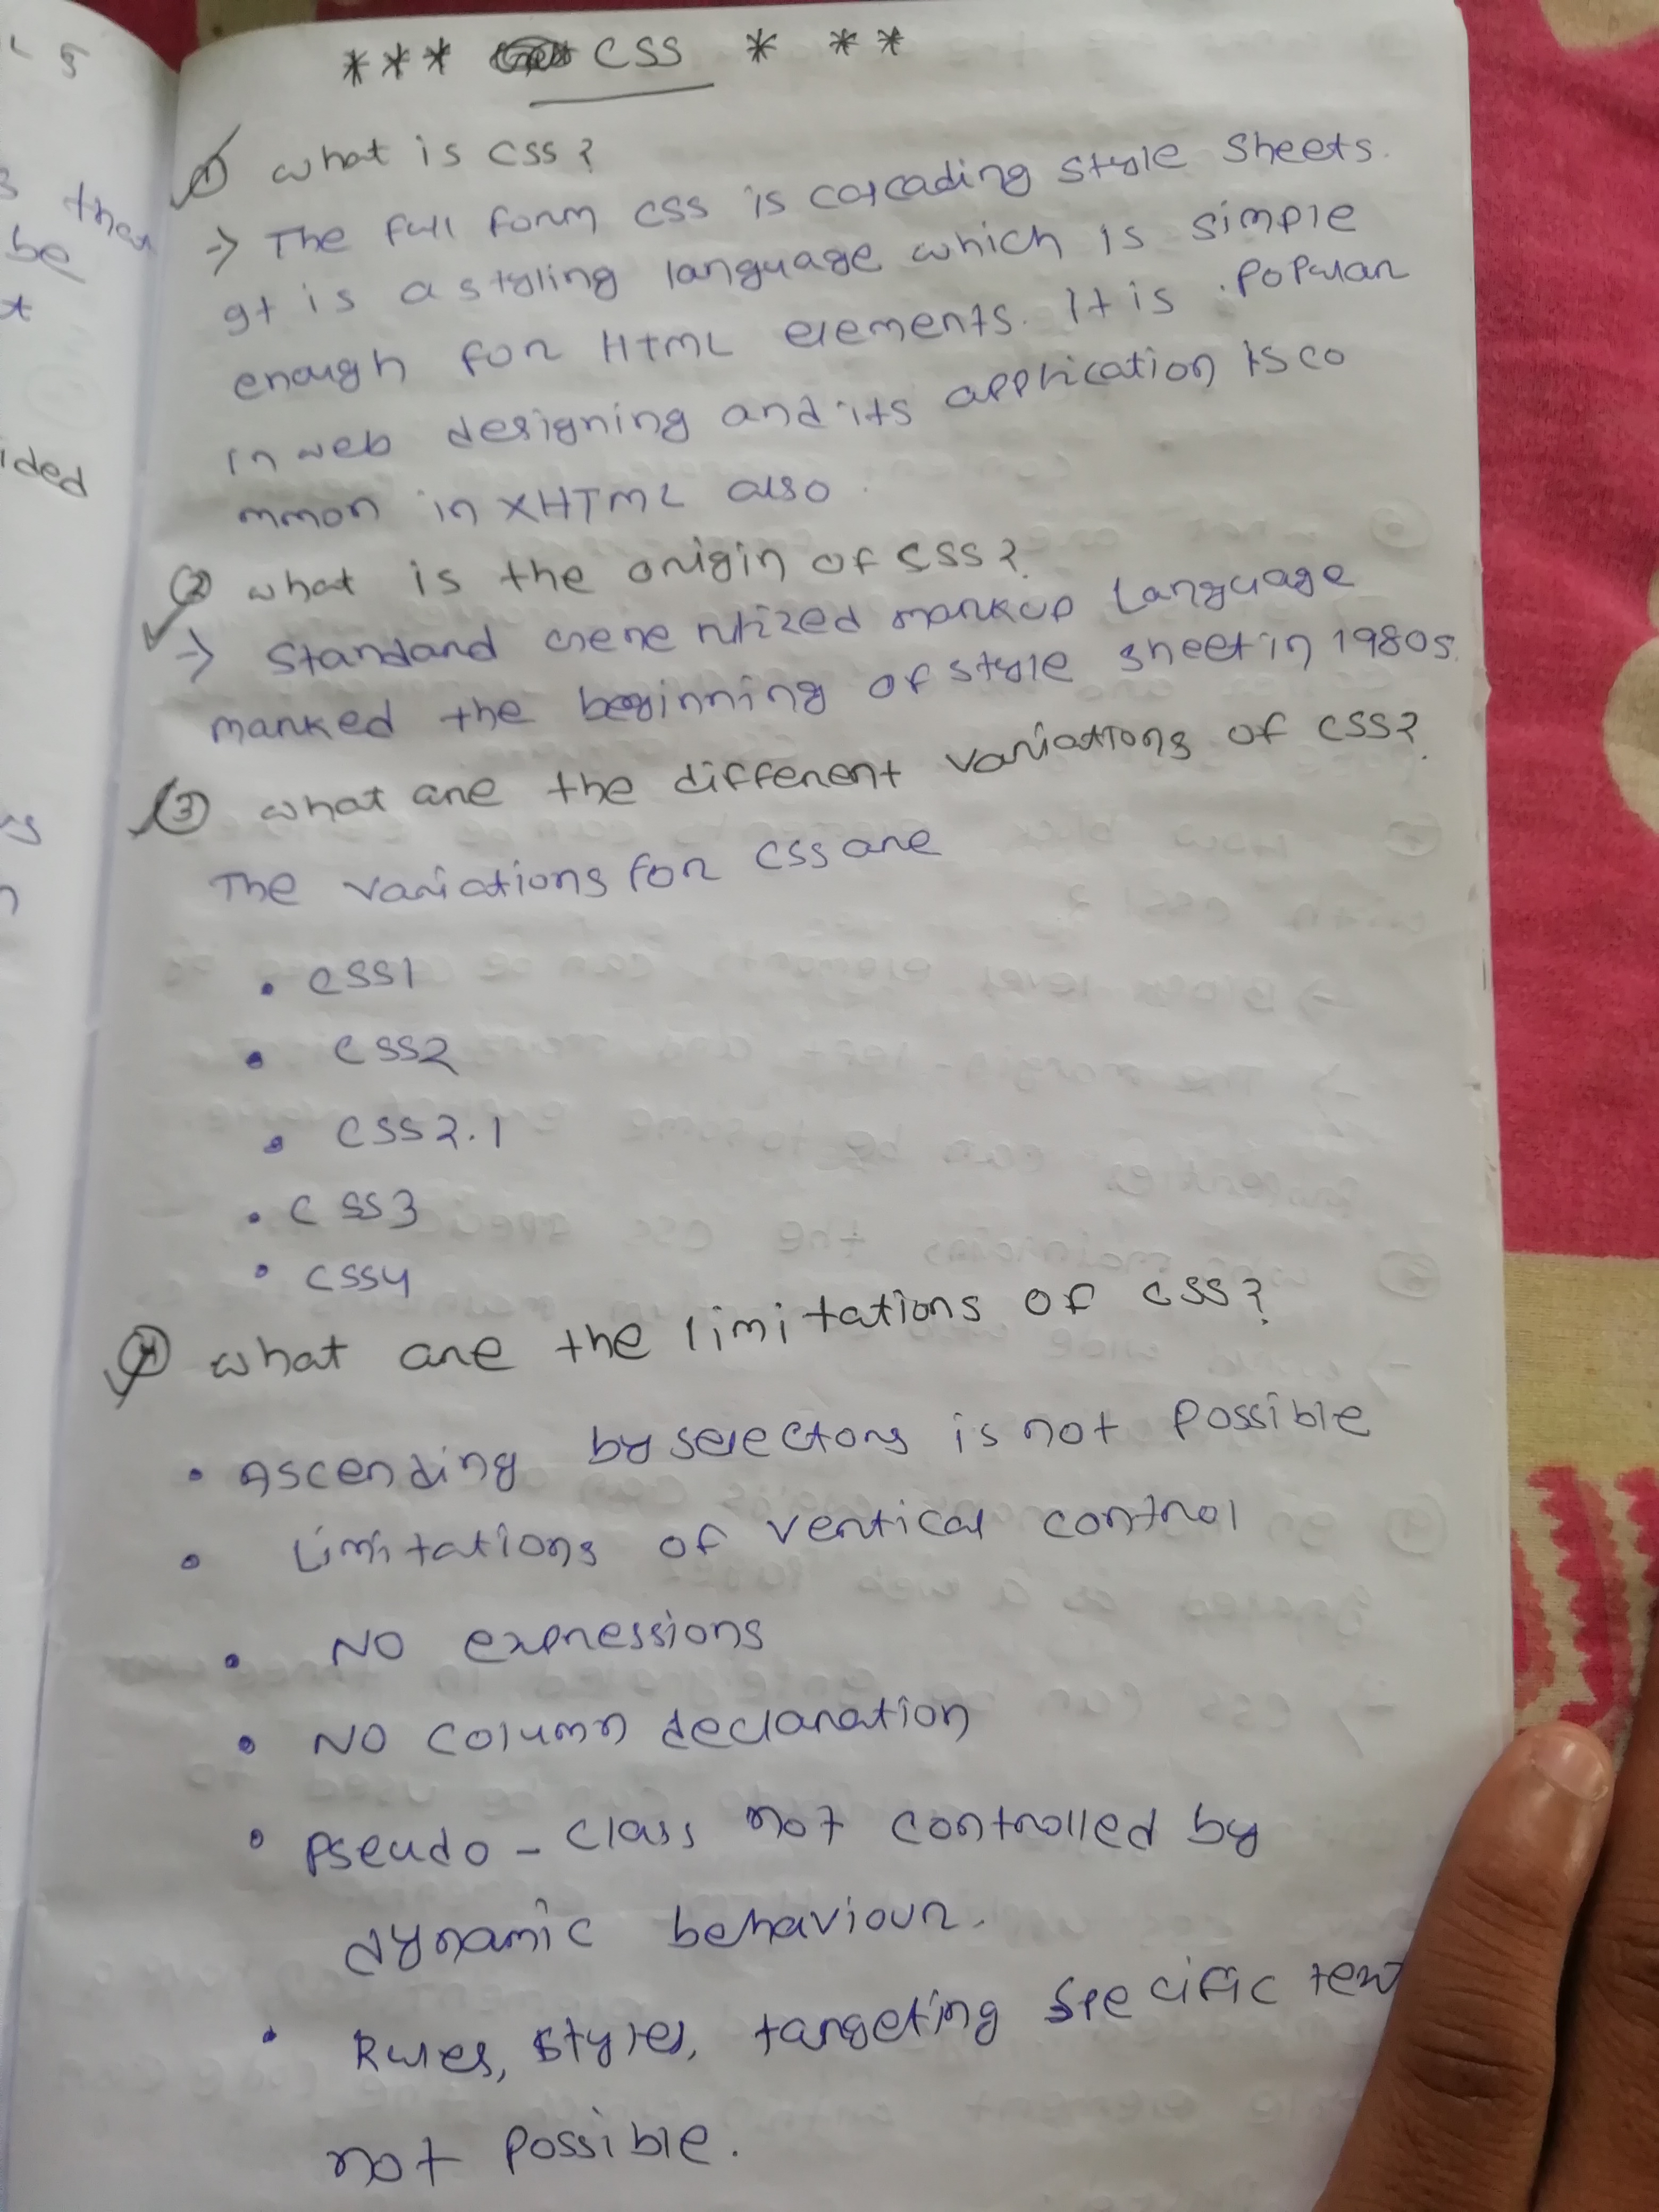 *** CSS * **
① What is CSS?
→ The full form CSS is cascading Style Sheets.
It is a styling language which is simple
enough for HTML elements. It is popular
in web designing and its application is co
mmon in XHTML also.
② What is the origin of CSS?
→ Standard Generalized Markup Language
marked the beginning of style sheet in 1980s.
③ What are the different variations of CSS?
The variations for CSS are
• CSS1
• CSS2
• CSS2.1
• CSS3
• CSS4
④ What are the limitations of CSS?
• Ascending by selectors is not possible
• Limitations of vertical control
• No expressions
• No column declaration
• Pseudo-class not controlled by
dynamic behaviour.
• Rules, styles, targeting specific text
not possible.